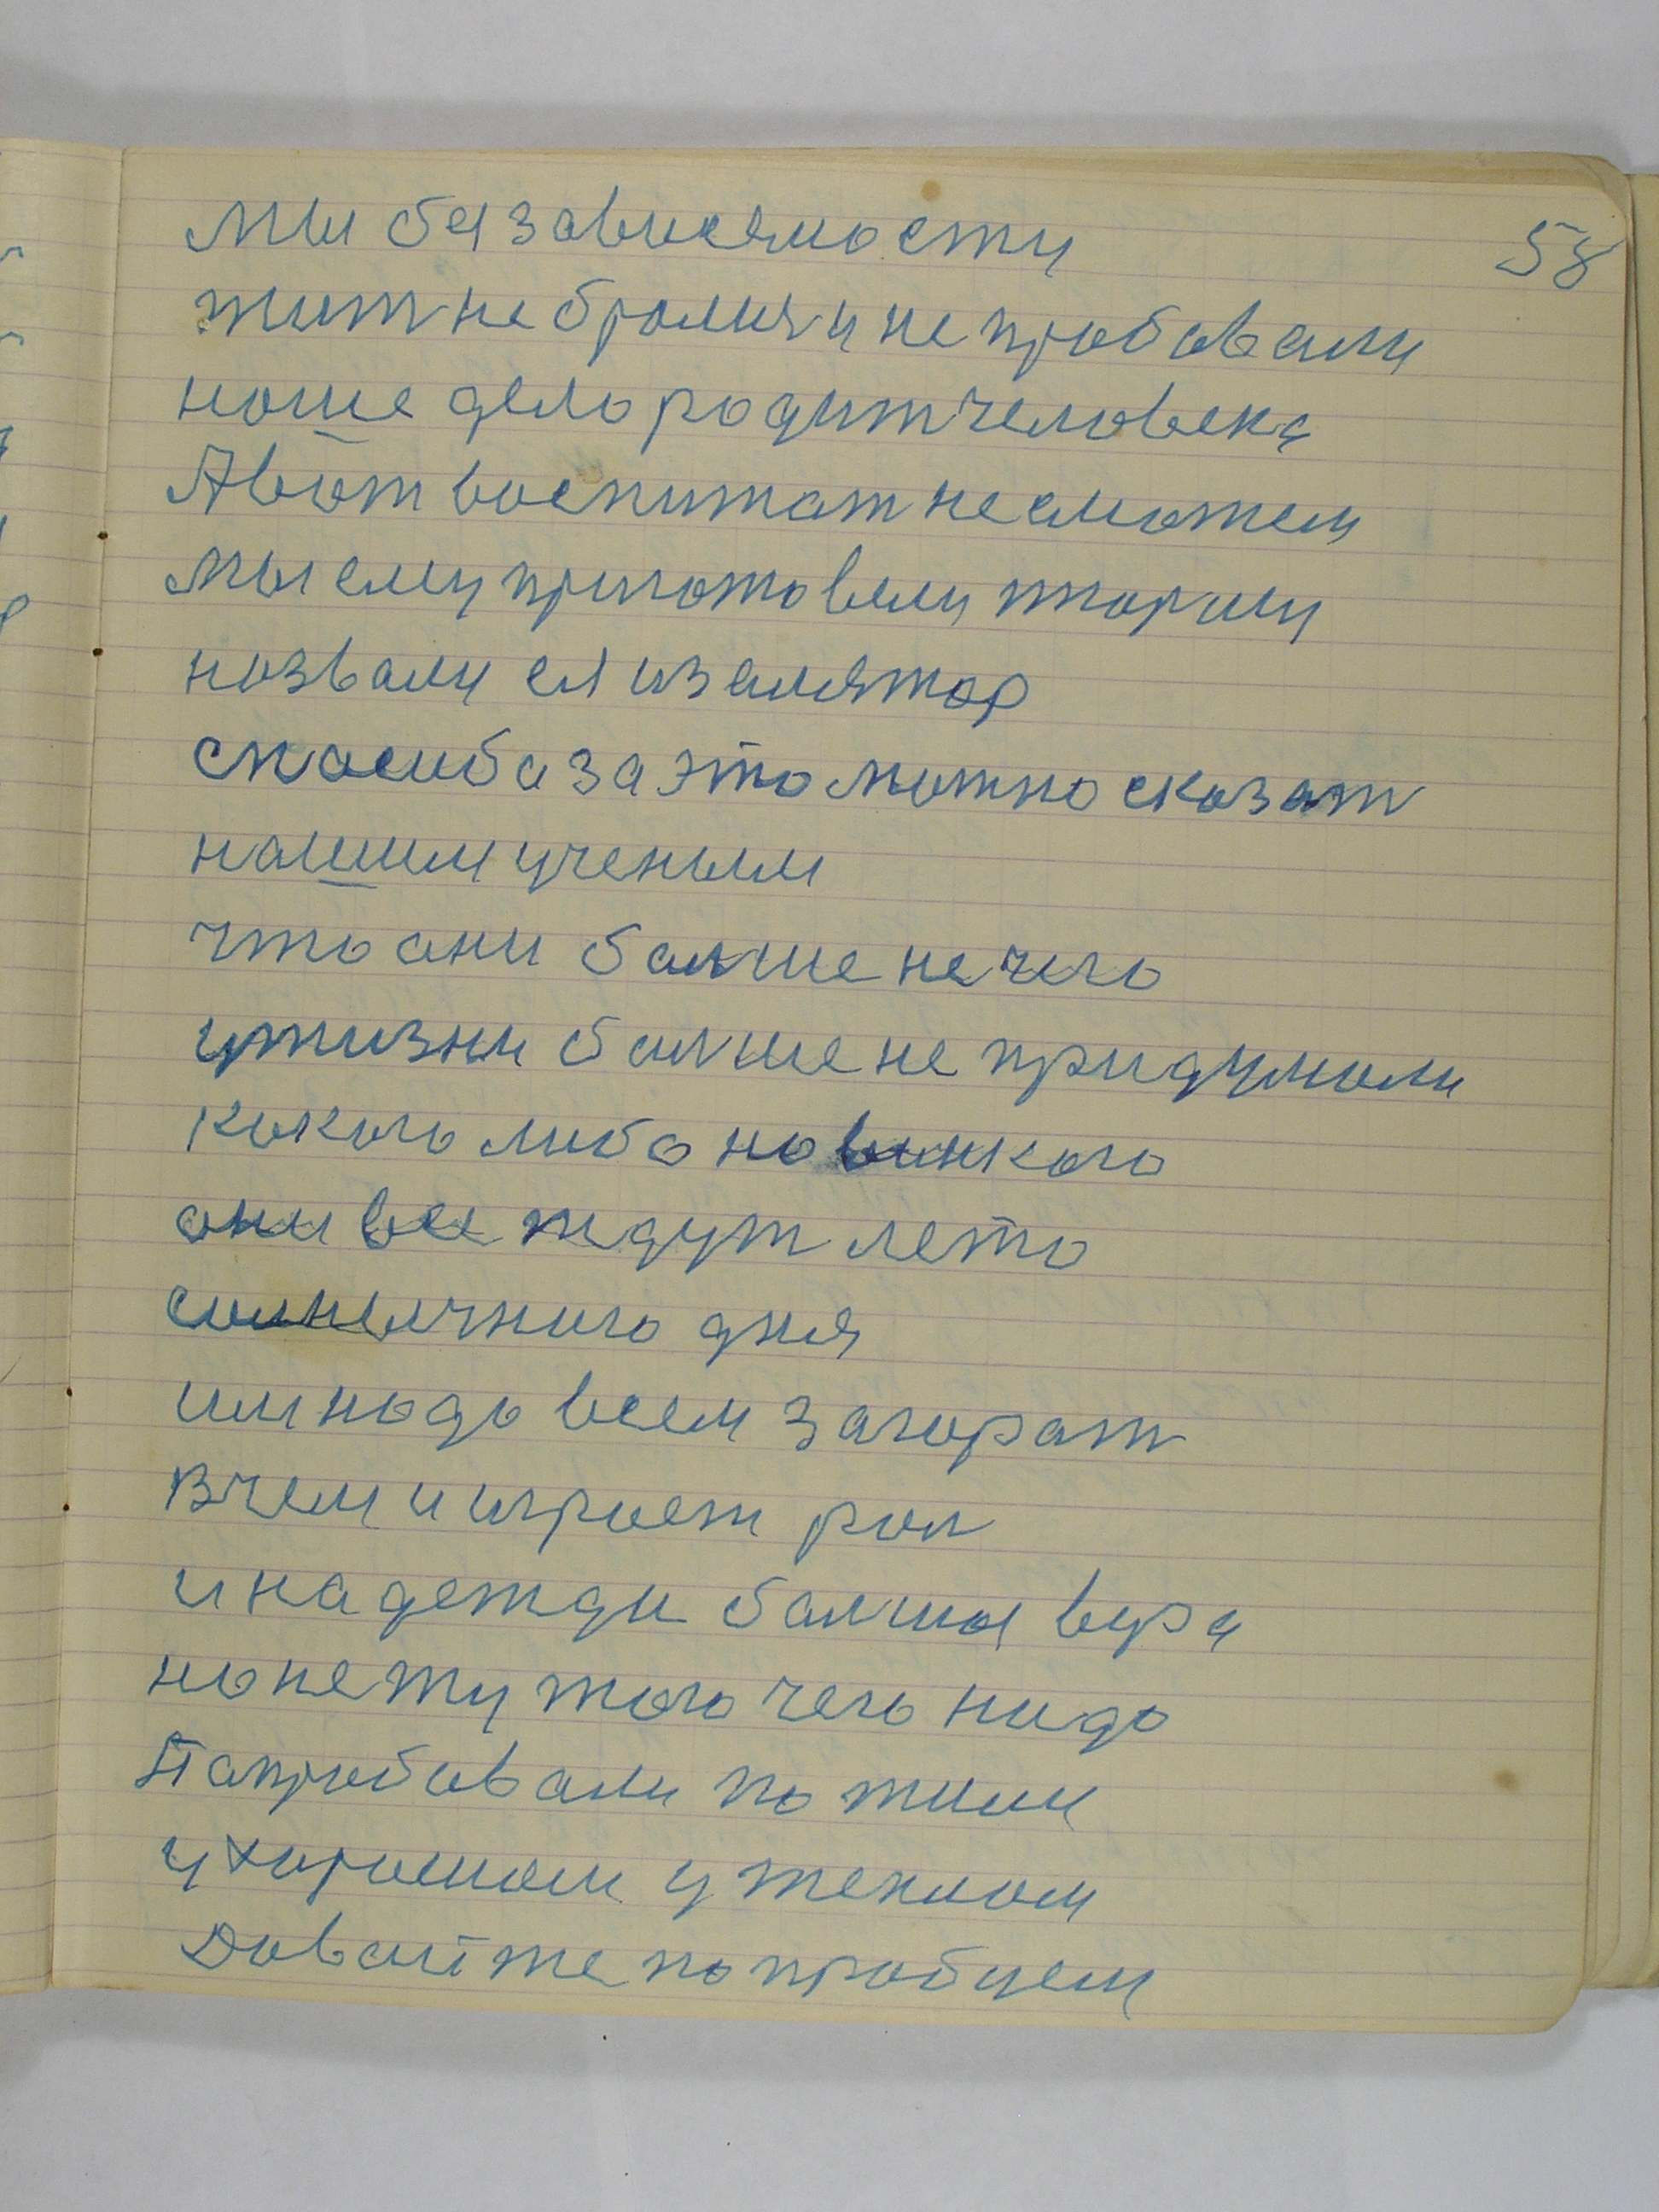 58
мы без зависемости
жит не бралися и не пробовали
наше дело родит человека
А вот воспитат не сможем
мы ему приготовели тюрму
назвали ея изалятор
спасиба за это можно сказат
нашим ученым
что они балше нечего
у жизни балше не придумали
какого либо новинкого
они все ждут лето
солнечного дня
им надо всем загорат
В чем и играет рол
и надежди балшая вера
но нету того чего надо
Папробовали пожили
у хорошом у теплом
Давайте попробуем